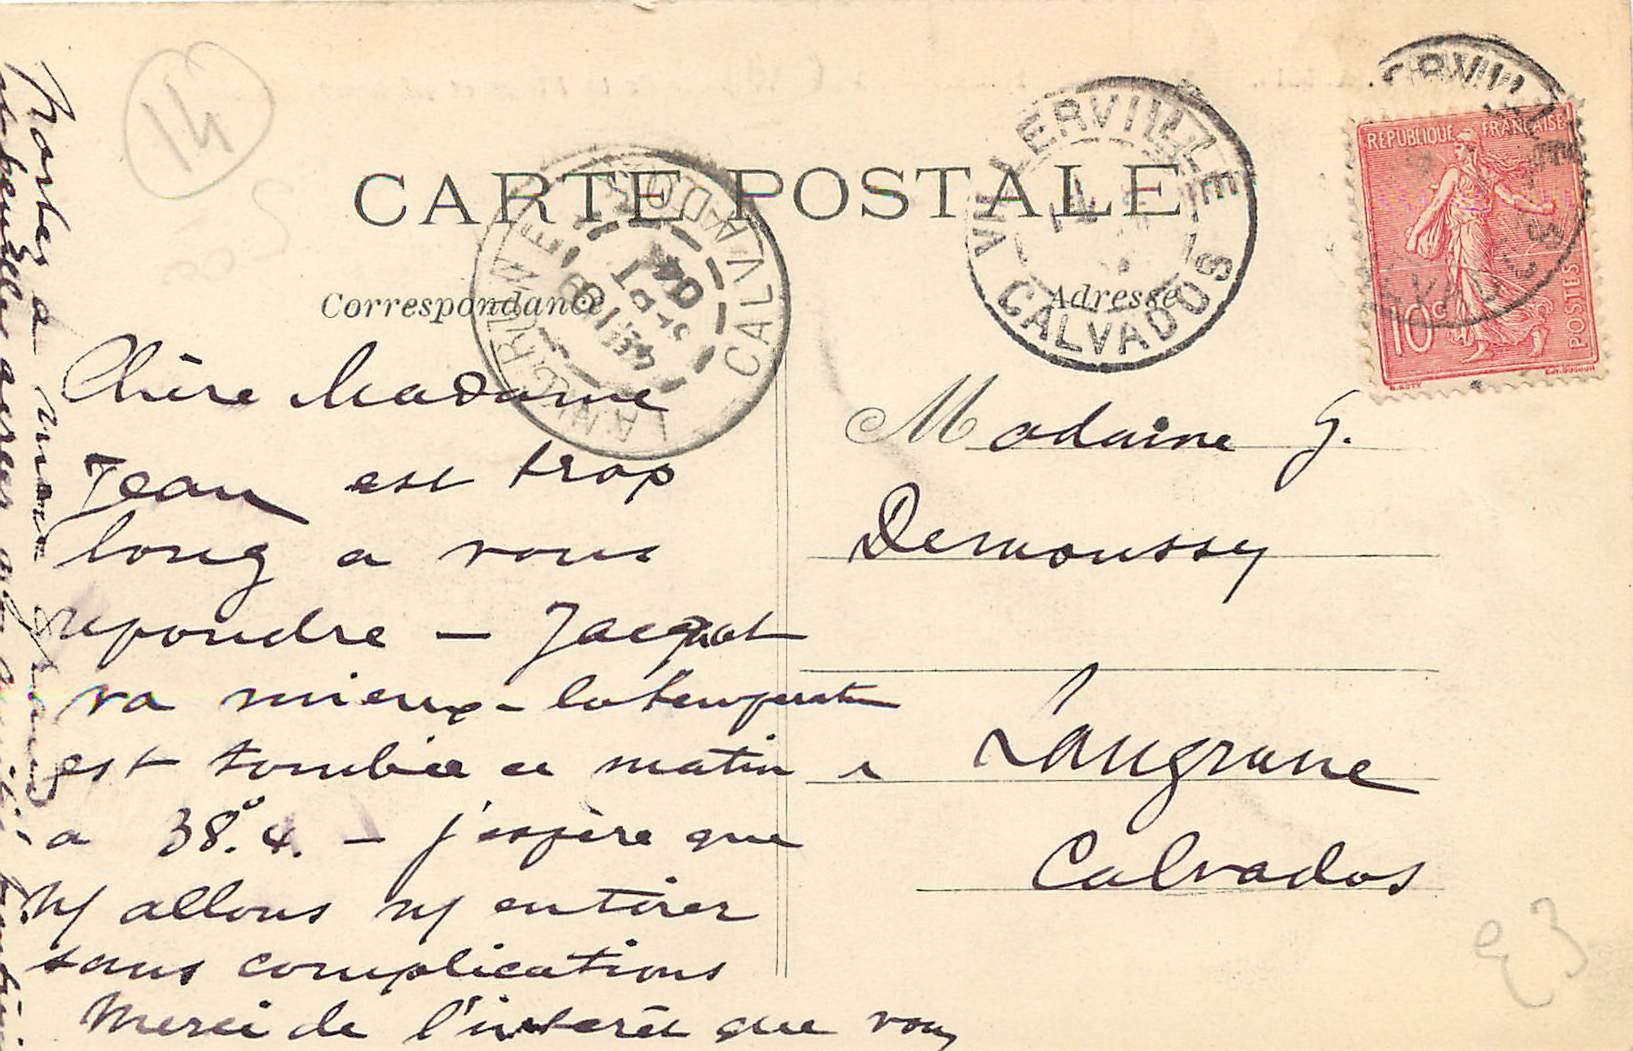 14
CARTE POSTALE
Correspondance
Adresse
VILLERVILLE
CALVADOS
LANGRUNE
CALVADOS
REPUBLIQUE FRANÇAISE
POSTES
10c
Chère Madame
Jean est trop
long a vous
repondre — Jacquot
va mieux - la temperature
est tombée ce matin
a 38°.4. — j'espère que
ns/ allons ns/ en tirer
sans complications
Merci de l'interêt que vous
portez a mon
Madame G.
Demoussy
à Langrune
Calvados